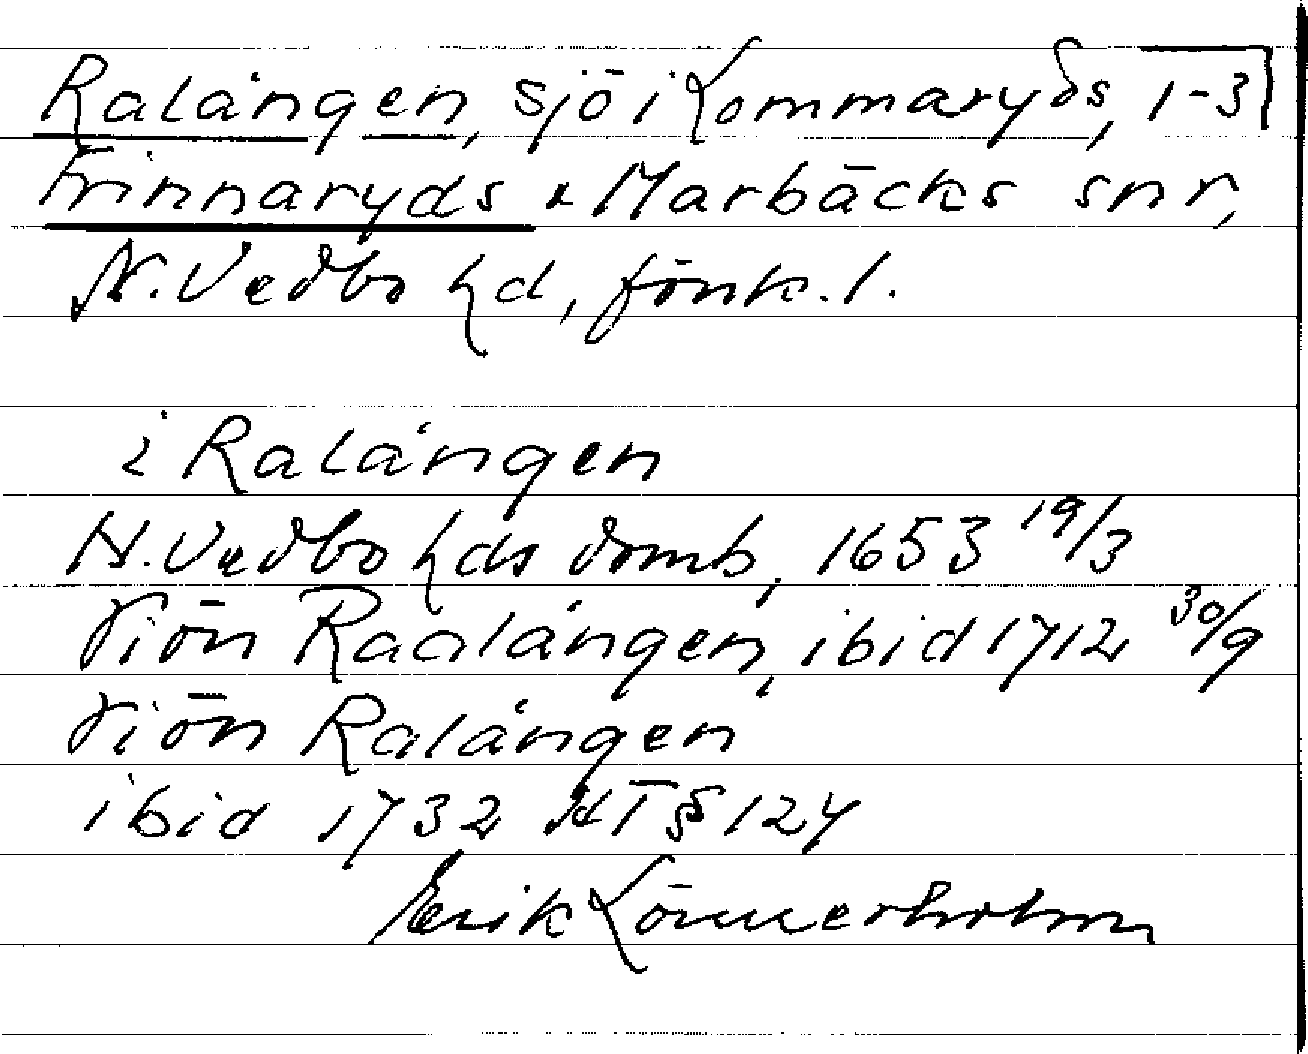 Ralången, sjö i Lommaryds, 1-3
Frinnaryds & Marbäcks snr,
N. Vedbo hd, Jönk. l.
i Ralången
N. Vedbo hds domb, 1653 19/3
Siön Raalången, ibid 1712 30/9
Siön Ralången
ibid 1732 HT § 124
Erik Lönnerholm